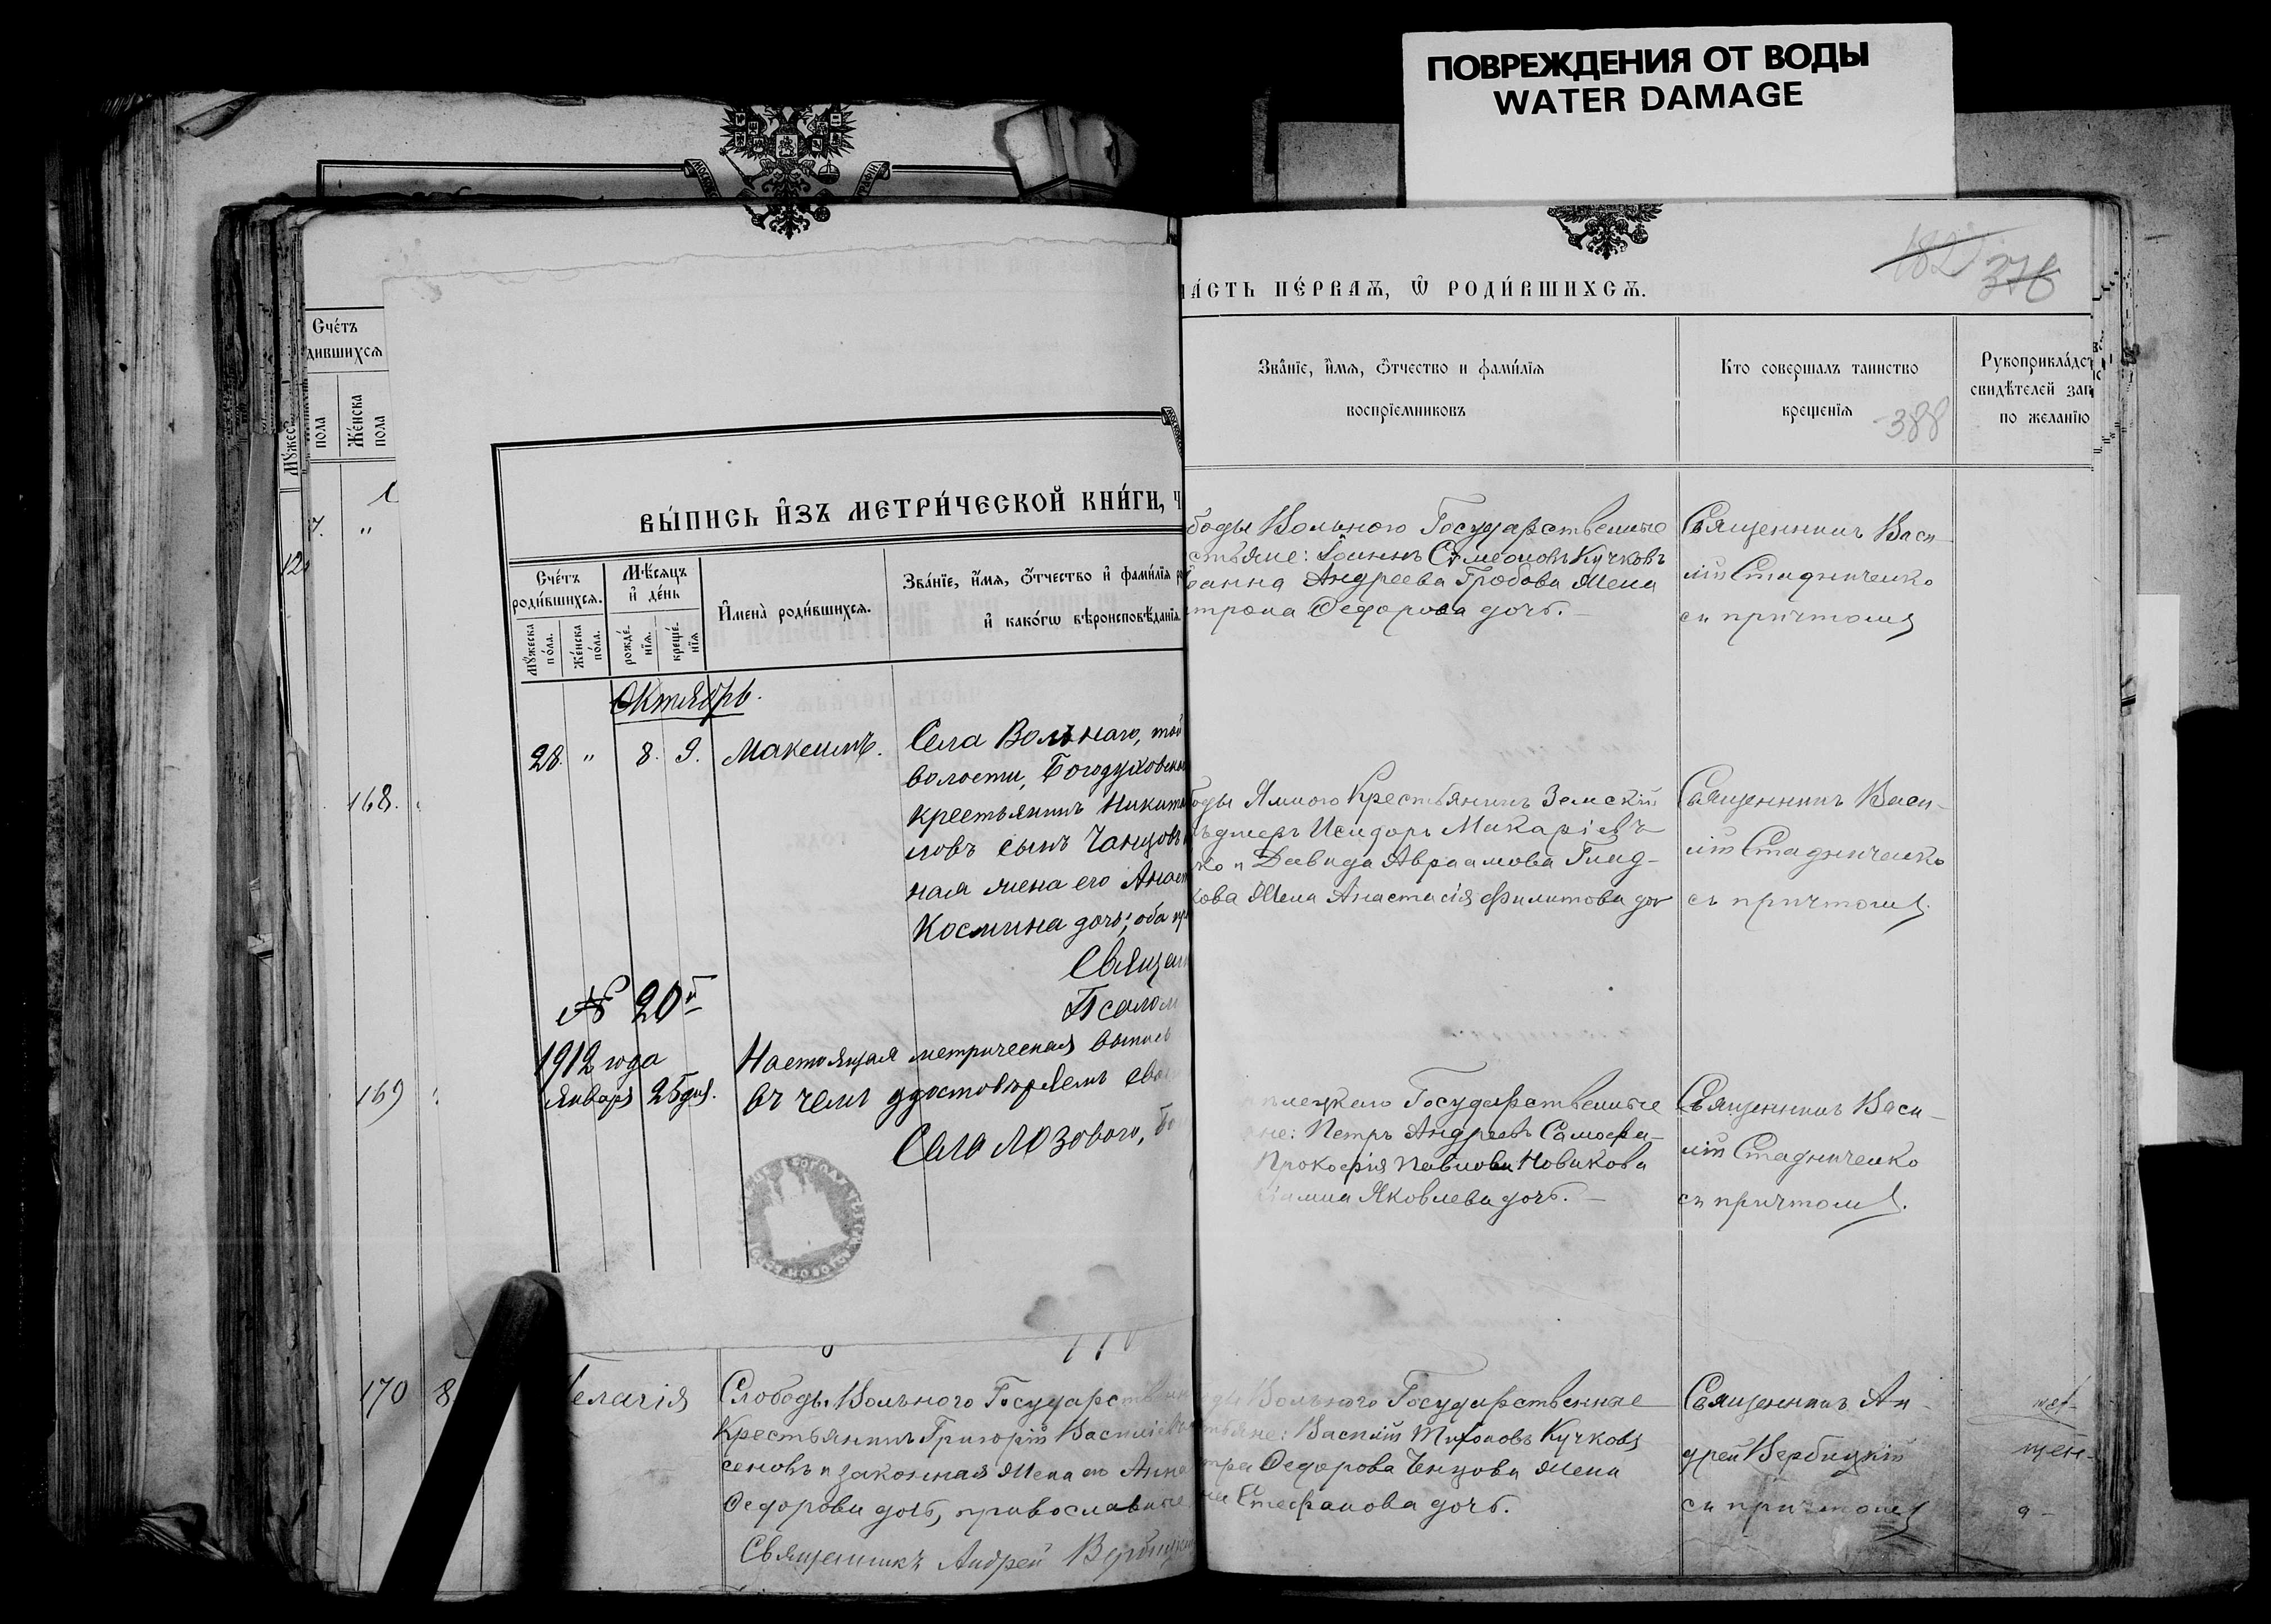 ПОВРЕЖДЕНИЯ ОТ ВОДЫ
WATER DAMAGE
Сче́тъ
дившихся
Мꙋжес
пола
Же́нска
пола
7. "
12
168.
169
ВЫ́ПИСЬ И҆ЗЪ МЕТРИ́ЧЕСКОЙ КНИ́ГИ, Ч
Сче́тъ
роди́вшихся.
Мꙋ́жеска
по́ла.
Же́нска
по́ла.
Мѣ́сяцъ
и҆ де́нь
рожде́-
нїя.
креще́-
нїя
И҆мена̀ роди́вшихся.
Зва́нїе, и҆́мя, ѻ҆́тчество и҆ фами́лїя р
и҆ како́гѡ вѣроисповѣ́данїя.
Октябрь.
28. " 8. 9. Максимъ.
Села Вольнаго, той
волости, Богодуховск
крестьянинъ Никита
ловъ сынъ Чанцовъ
ная жена его Анаст
Космина дочь; оба пр
Священ
Псалом
№ 20й
1912 года
Января 25 дня.
Настоящая метрическая выпись
въ чемъ удостовѣряемъ сво
Села Лозового, Бо
170 8
елагія
Слободы Вольного Государствен
Крестьянинъ Григорій Василіев
сеновъ и законная жена его Анна
Ѳедорова дочь, православные
Священникъ Андрей Вербицкій
182 378
ЧА́СТЬ ПЕ́РВАꙖ, Ѡ҆ РОДИ́ВШИХСꙖ.
Зва́нїе, и҆́мя, ѻ҆́тчество и фами́лїя
воспрїемниковъ
Кто совершалъ таинство
крещенїя
388
Рукоприкла́дст
свидѣтелей зап
по желанїю
боды Вольного Государственные
стьяне: Іоаннъ Симеоновъ Кучковъ
Іоанна Андреева Гробова жена
трона Ѳедорова дочь.
Священникъ Васи-
лій Стадниченко
съ причтомъ
оды Ямного Крестьянинъ Земскій
льдшеръ Исидоръ Макаріевъ
ко и Давида Авраамова Глад-
кова жена Анастасія Филитова доч
Священникъ Васи-
лій Стадниченко
съ причтомъ.
Государственные
не: Петръ Андреевъ Самофа-
Прокофія Павлова Новикова
Яковлева дочь.
Священникъ Васи-
лій Стадниченко
съ причтомъ.
ды Вольного Государственные
тьяне: Василій Тихоновъ Кучковъ
тра Ѳедорова Ченцова жена
на Стефанова дочь.
Священникъ Ан-
дрей Вербицкій
съ причтомъ